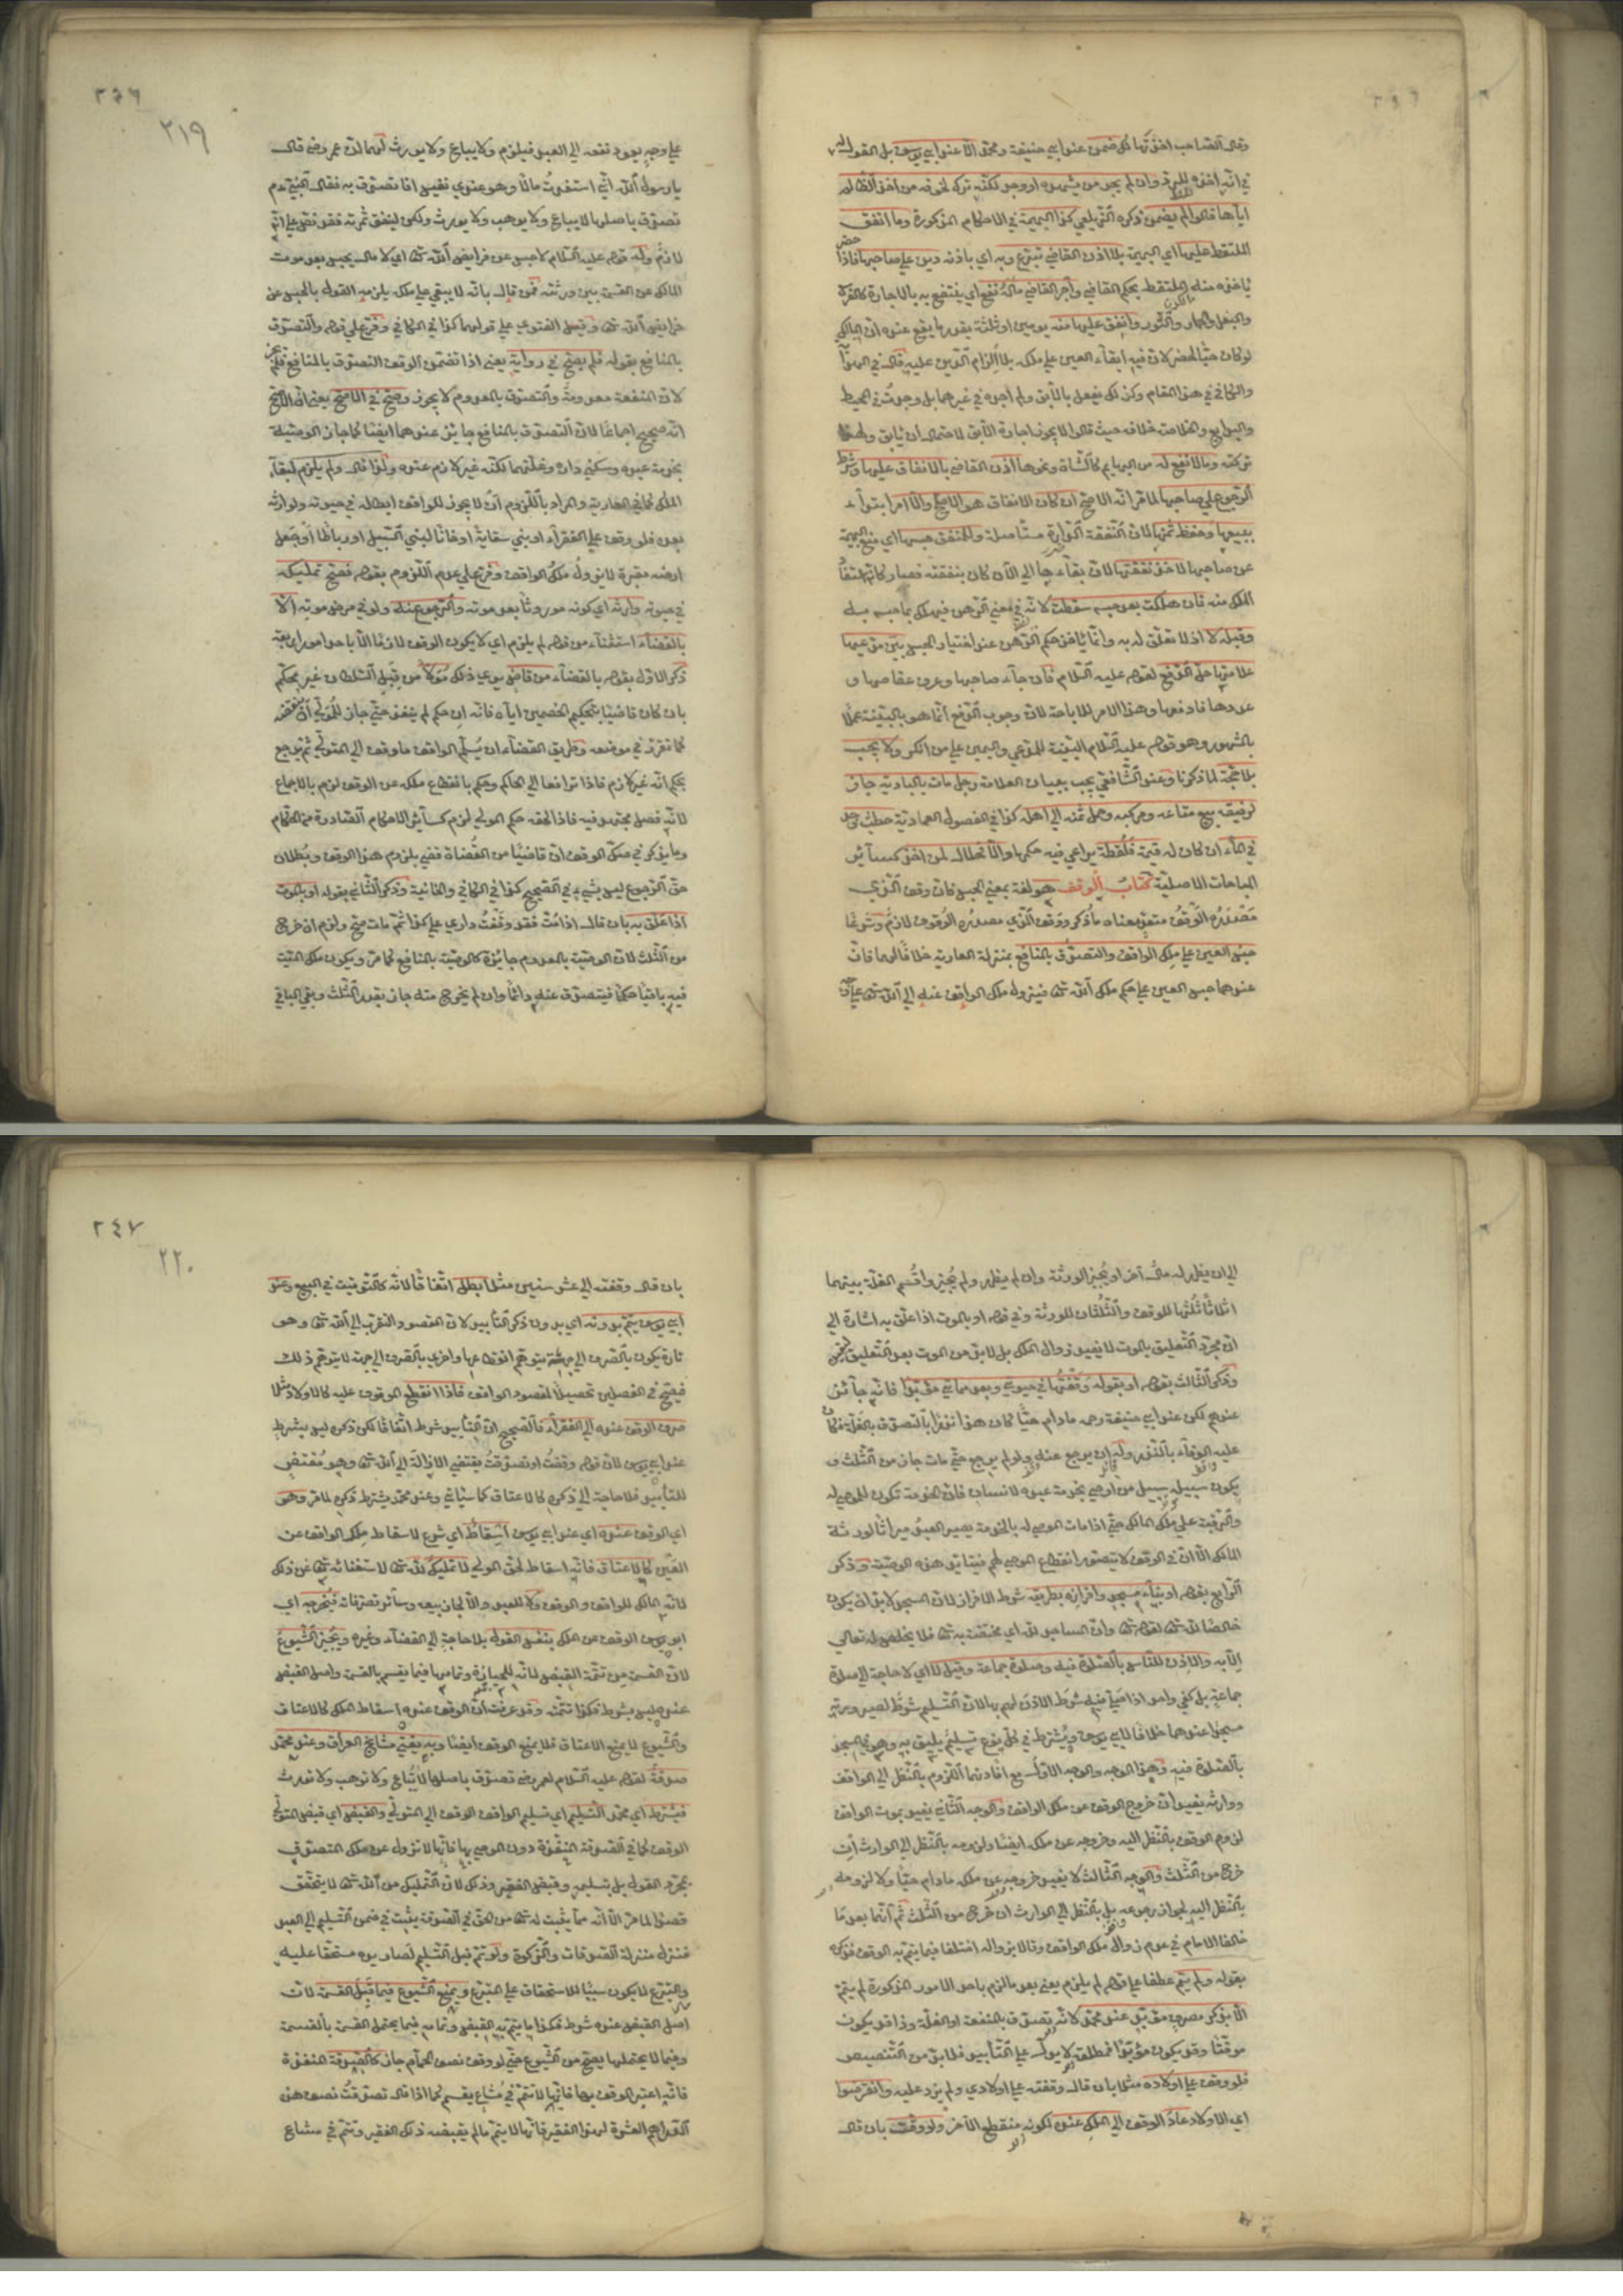 وقال الصاحب اخذتها لك ضمن عند ابي حنيفة ومحمد الا عند ابي يوسف بل القول له
في انه اخذه للرد وان لم يجد من يشهده او وجد لكنه تركه لخوفه من اخذ الظالم
اياها قالوا لم يضمن ذكره الزيلعي كذا البهيمة في الاحكام المذكورة وما انفق
الملتقط عليها اي البهيمة بلا اذن القاضي تبرع وبه اي باذنه دين على صاحبها فاذا حضر
ياخذه منه الملتقط بحكم القاضي وآجر القاضي ماله نفع اي ينتفع به بالاجارة كالفرس
والبغل والحمار والثور وانفق عليها منه يومين او ثلثة بقدر ما يقع عنده ان المالك
لو كان حيا لحضر لان فيه ابقاء العين على ملكه بلا الزام الدين عليه قال في الهداية
والكافي في هذا المقام وكذلك يفعل بالآبق ولم اجده في غيرهما بل وجدت في المحيط
والبدايع والخلاصة خلافه حيث قالوا لا يجوز اجارة الآبق لاحتمال ان يأبق ولهذا
تركته وما لا نفع له من البهايم كالشاة ونحوها اذن القاضي بالانفاق عليها وشرط
الرجوع على صاحبها لما مر انه الاصح ان كان الانفاق هو الاصلح والا امر ابتداء
ببيعها وحفظ ثمنها لان النفقة الدارة مستاصلة وللمنفق حبسها اي منع البهيمة
عن صاحبها لاخذ نفقتها لان بقاءها الى الآن كان بنفقته فصار كانه استفاد
الملك منه فان هلكت بعد حبسه سقطت لانه في معنى الرهن فيهلك بما حبس به
وقبله لا اذ لا تعلق له به وانما ياخذ حكم الرهن عند اختيار الحبس بين مدعيها
علامتها حل الدفع لقوله عليه السلام فان جاء صاحبها وعرف عفاصها و
عددها فادفعها وهذا الامر للاباحة لان وجوب الدفع انما هو بالبينة عملا
بالمشهور وهو قوله عليه السلام البينة للمدعي واليمين على من انكر ولا يجب
بلا حجة لما ذكرنا وعند الشافعي يجب ببيان العلامة رجل مات بالبادية جاز
لرفيقه بيع متاعه ومركبه وحمل ثمنه الى اهله كذا في الفصول العمادية حطب وجد
في الماء ان كان له قيمة فلقطة يراعى فيه حكمها والا فحلال لمن اخذ كسائر
المباحات الاصلية كتاب الوقف هو لغة بمعنى الحبس فان وقف الذي
مصدره الوقف متعد بمعناه ما ذكر ووقف الذي مصدره الوقوف لازم وشرعا
حبس العين على ملك الواقف والتصدق بالمنافع بمنزلة العارية خلافا لهما فان
عندهما حبس العين على حكم ملك الله تعالى فيزول ملك الواقف عنه الى الله تعالى
٢٤٦
٢١٩
على وجه يعود نفعه الى العبد فيلزم ولا يباع ولا يورث لهما ان عمر رضي قال
يا رسول الله اني استفدت مالا وهو عندي نفيس افاتصدق به فقال النبي عم
تصدق باصلها لا يباع ولا يوهب ولا يورث ولكن لينفق ثمرته فقد نص على انه
لازم وله قوله عليه السلام لا حبس عن فرايض الله تعالى اي لا مال يحبس بعد موت
المالك عن القسمة بين ورثته فمن قال بانه لا يبقى على ملكه يلزمه القول بالحبس عن
فرايض الله تعالى وقيل الفتوى على قولهما كذا في الكافي وفرع على قوله والتصدق
بالمنافع بقوله فلم يصح في رواية يعني اذا تضمن الوقف التصدق بالمنافع فلم يجز
لان المنفعة معدومة والتصدق بالمعدوم لا يجوز وصح في الاصح يعني ان الاصح
انه صحيح اجماعا لان التصدق بالمنافع جايز عندهما ايضا كما جاز الوصية
بخدمة عبده وسكنى داره وغلتهما لكنه غير لازم عنده ولذا قال ولم يلزم لبقاء
الملك كما في العارية والمراد باللزوم ان لا يجوز للواقف ابطاله في حيوته ولوارثه
بعده فلو وقف على الفقراء او بنى سقاية او خانا لبني السبيل او رباطا او جعل
ارضه مقبرة لا يزول ملك الواقف وفرع على عدم اللزوم بقوله فصح تمليكه
في حيوته وارثه اي كونه موروثا بعد موته والرجوع عنه ولو في مرض موته الا
بالقضاء استثناء من قوله لم يلزم اي لا يكون الوقف لازما الا باحد امور اربعة
ذكر الاول بقوله بالقضاء من قاض يرى ذلك مولا من قبل السلطان غير محكم
بان كان قاضيا بتحكيم الخصمين اياه فانه ان حكم لم ينفذ حتى جاز للمولى ان ينقضه
كما تقرر في موضعه وطريق القضاء ان يسلم الواقف ما وقف الى المتولي ثم يرجع
بحكم انه غير لازم فاذا ترافعا الى الحاكم وحكم بانقطاع ملكه عن الوقف لزم بالاجماع
لانه فصل مجتهد فيه فاذا لحقه حكم المولى لزم كسائر الاحكام الصادرة من الحكام
وما يذكر في صك الوقف ان قاضيا من القضاة قضى بلزوم هذا الوقف وبطلان
حق الرجوع ليس بشيء في الصحيح كذا في الكافي والخانية وذكر الثاني بقوله او بالموت
اذا علق به بان قال اذا مت فقد وقفت داري على كذا ثم مات صح ولزم ان خرج
من الثلث لان الوصية بالمعدوم جائزة كالوصية بالمنافع كما مر ويكون ملك الميت
فيه باقيا حكما فيتصدق عنه دائما وان لم يخرج منه جاز بقدر الثلث وبقي الباقي
الى ان يظهر له مال آخر او يجيز الورثة وان لم يظهر ولم يجيزوا قسم الغلة بينهما
اثلاثا ثلثها للوقف والثلثان للورثة وفي قوله او بالموت اذا علق به اشارة الى
ان مجرد التعليق بالموت لا يفيد زوال الملك بل لابد من الموت بعد التعليق
وذكر الثالث بقوله او بقوله وقفتها في حيوتي وبعد مماتي مؤبدا فانه جائز
عندهم لكن عند ابي حنيفة رحمه مادام حيا كان هذا نذرا بالتصدق بالغلة فكان
عليه الوفاء بالنذر وله ان يرجع عنه ولو لم يرجع حتى مات جاز من الثلث و
يكون سبيله سبيل من اوصى بخدمة عبده لانسان فان الخدمة تكون للموصى له
والرقبة على ملك المالك حتى اذا مات الموصى له بالخدمة يصير العبد ميراثا لورثة
المالك الا ان في الوقف لا يتصور انقطاع الموصى لهم فيتابد هذه الوصية وذكر
الرابع بقوله او بناء مسجد وافرازه بطريقه شرط الافراز لان المسجد لابد ان يكون
خالصا لله تعالى لقوله تعالى وان المساجد لله اي مختصة به تعالى فلا يخلص له تعالى
الا به والاذن للناس بالصلوة فيه وصلوة جماعة وقيل لا اي لا حاجة الى صلوة
جماعة بل كفى واحد اذا صلى فيه شرط الاذن لهم بها لان التسليم شرط لصيرورته
مسجدا عندهما خلافا لابي يوسف ويشترط في كل نوع تسليم يليق به وهو في المسجد
بالصلوة فيه وهذا الوجه والوجه الاول مع افادتهما اللزوم بالنظر الى الواقف
ووارثه يفيدان خروج الوقف عن ملك الواقف والوجه الثاني يفيد بموت الواقف
لزوم الوقف بالنظر اليه وخروجه عن ملكه ايضا ولزومه بالنظر الى الوارث ان
خرج من الثلث والوجه الثالث لا يفيد خروجه عن ملكه مادام حيا ولا لزومه
بالنظر اليه لجواز رجوعه بل بالنظر الى الوارث ان خرج من الثلث ثم انهما بعد ما
خالفا الامام في عدم زوال ملك الواقف وقالا بزواله اختلفا فيما يتم به الوقف فذكره
بقوله ولم يتم عطفا على قوله لم يلزم يعني بعد ما لزم باحد الامور المذكورة لم يتم
الا بذكر مصرف مؤبد عند محمد لانه تصدق بالمنفعة او الغلة وذا قد يكون
موقتا وقد يكون مؤبدا فمطلقه لا يدل على التأبيد فلابد من التنصيص
فلو وقف على اولاده مثلا بان قال وقفته على اولادي ولم يزد عليه وانقرضوا
اي الاولاد عاد الوقف الى الملك عنده لكونه منقطع الآخر ولو وقت بان قال
٢٤٧
٢٢٠
بان قال وقفته الى عشر سنين مثلا بطل اتفاقا لانه كالتوقيت في البيع وعند
ابي يوسف يتم بدونه اي بدون ذكر التأبيد لان المقصود التقرب الى الله تعالى وهو
تارة يكون بالصرف الى جهة يتوهم انقطاعها واخرى بالصرف الى جهة لا يتوهم ذلك
فيصح في الفصلين تحصيلا لمقصود الواقف فاذا انقطع الموقوف عليه كالاولاد مثلا
صرف الوقف عنده الى الفقراء فالصحيح ان التأبيد شرط اتفاقا لكن ذكره ليس بشرط
عند ابي يوسف لان قوله وقفت او تصدقت يقتضي الازالة الى الله تعالى وهو مقتض
للتأبيد فلا حاجة الى ذكره كالاعتاق كما سيأتي وعند محمد يشترط ذكره لما مر وهو
اي الوقف عنده اي عند ابي يوسف اسقاط اي شرع لاسقاط ملك الواقف عن
العين كالاعتاق فانه اسقاط لحق المولى لا تمليك لله تعالى لاستغنائه تعالى عن ذلك
لانه المالك للواقف والوقف ولا للعبد والا لجاز بيعه وسائر تصرفاته فيخرجه اي
ابو يوسف الوقف عن الملك بنفس القول بلا حاجة الى القضاء وغيره ويجيز الشيوع
لان القسمة من تتمة القبض لانه للحيازة وتمامها فيما يقسم بالقسمة واصل القبض
عنده ليس بشرط فكذا تتمته وقد عرفت ان الوقف عنده اسقاط الملك كالاعتاق
والشيوع لا يمنع الاعتاق فلا يمنع الوقف ايضا وبه يفتي مشايخ العراق وعند محمد
صدقة لقوله عليه السلام لعمر رضي تصدق باصلها لا تباع ولا توهب ولا تورث
فيشترط اي محمد التسليم اي تسليم الواقف الوقف الى المتولي والقبض اي قبض المتولي
الوقف كما في الصدقة المنفذة دون الموصى بها فانها لا تزول عن ملك المتصدق
بمجرد القول بل بتسليمه وقبض الفقير وذلك لان التمليك من الله تعالى لا يتحقق
قصدا لما مر الا انه مما يثبت له تعالى من الحق في الصدقة يثبت في ضمن التسليم الى العبد
فنزل منزلة الصدقات والزكوة ولو تم قبل التسليم لصار يده مستحقا عليه
والتبرع لا يكون سببا للاستحقاق على المتبرع ويمنع الشيوع فيما قبل القسمة لان
اصل القبض عنده شرط فكذا ما يتم به القبض وتمامه فيما يحتمل القسمة بالقسمة
وفيما لا يحتملها يصح مع الشيوع حتى لو وقف نصف الحمام جاز كالصدقة المنفذة
فانه اعتبر الوقف بها فانها لا تتم في مشاع يقسم كما اذا قال تصدقت نصف هذه
الدراهم العشرة لهذا الفقير فانها لا يتم ما لم يقبضه ذلك الفقير وتتم في مشاع